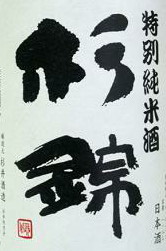 特別純米酒
杉錦
日本酒
杉井酒造